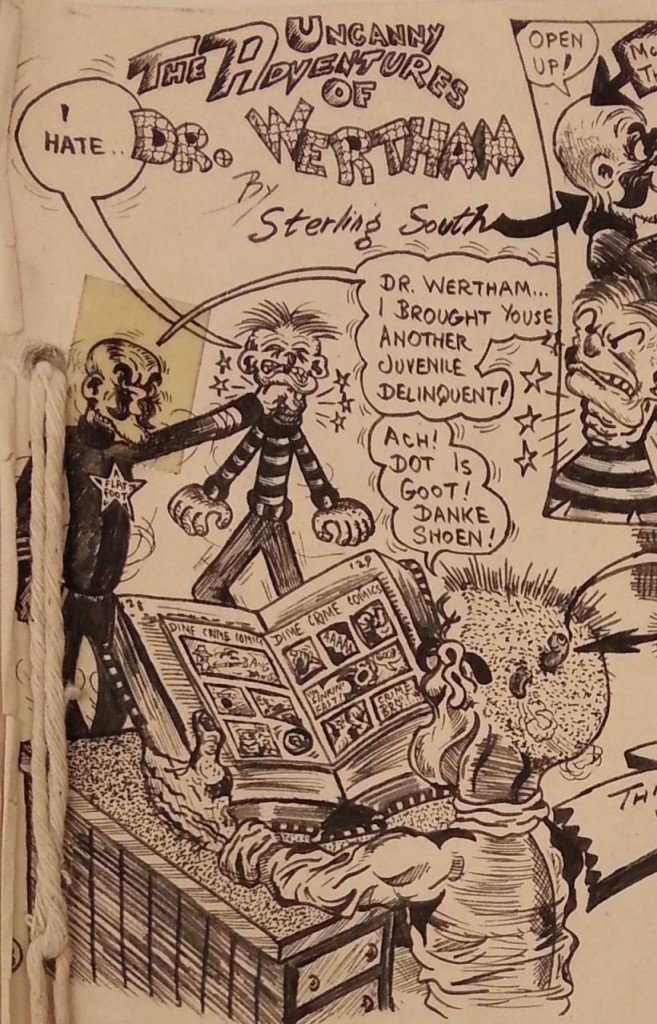 THE UNCANNY
ADVENTURES
OF
DR. WERTHAM
By
Sterling South
I
HATE..
DR. WERTHAM...
I BROUGHT YOUSE
ANOTHER
JUVENILE
DELINQUENT!
ACH!
DOT IS
GOOT!
DANKE
SHOEN!
FLAT
FOOT
129
DIME CRIME COMICS
DIME CRIME COMICS
OPEN
UP!